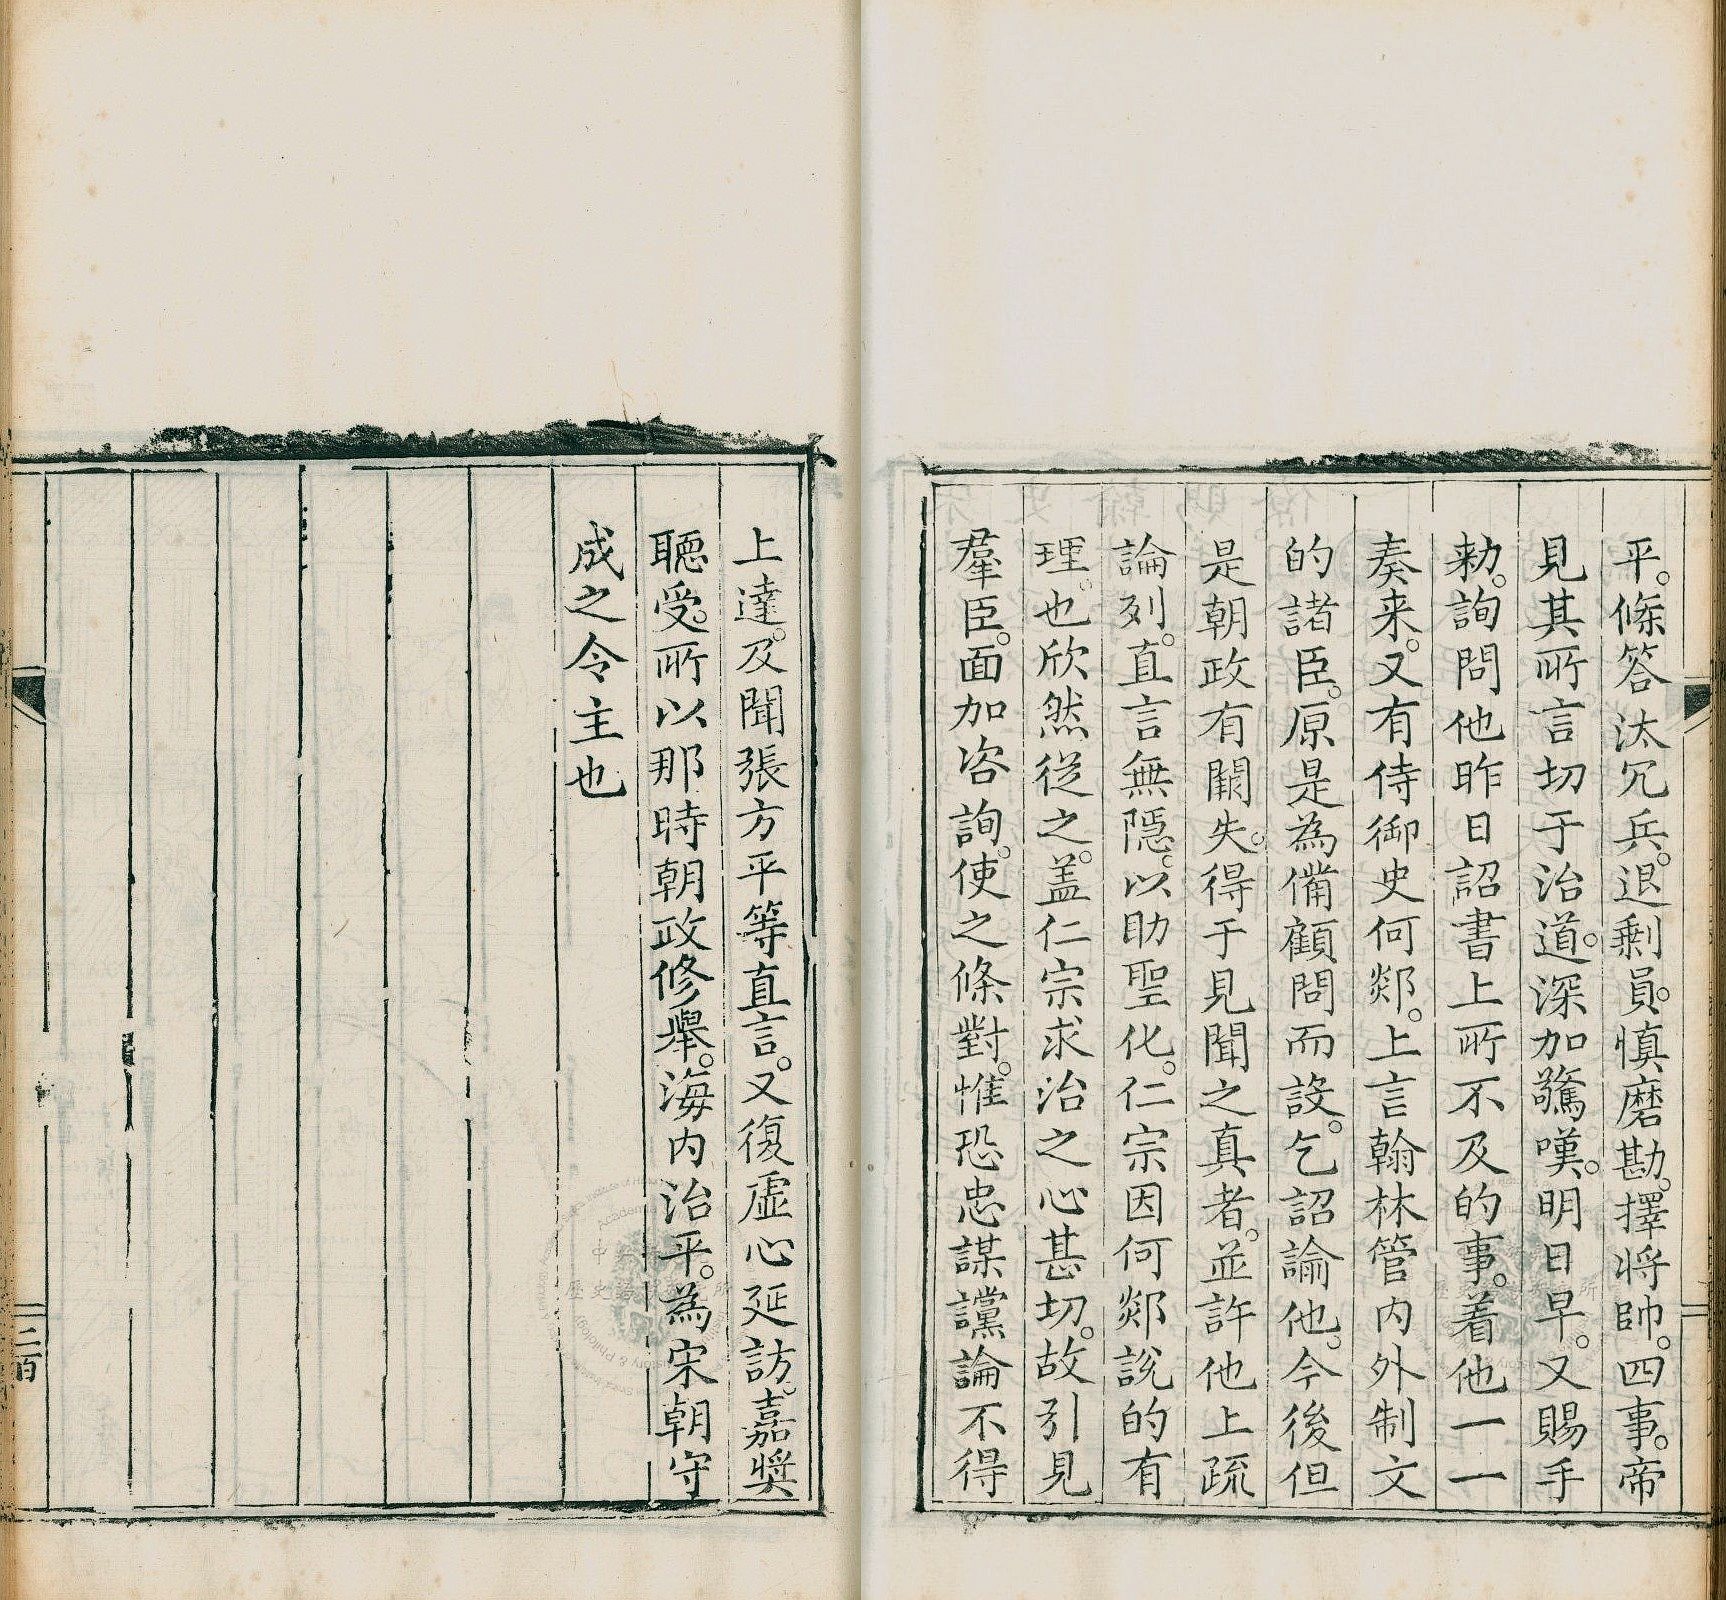 平。條答汰冗兵。退剩員。慎磨勘。擇將帥。四事。帝
見其所言切于治道。深加驚嘆。明日早。又賜手
勑。詢問他昨日詔書上所不及的事。着他一一
奏来。又有侍御史何郯。上言翰林管内外制文
的諸臣。原是為備顧問而設。乞詔諭他。今後但
是朝政有闕失。得于見聞之真者。並許他上疏
論列。直言無隱。以助聖化。仁宗因何郯說的有
理。也欣然從之。盖仁宗求治之心甚切。故引見
羣臣。面加咨詢。使之條對。惟恐忠謀讜論不得
上達。及聞張方平等直言。又復虚心延訪。嘉奬
聽受。所以那時朝政修舉。海内治平。為宋朝守
成之令主也
二百